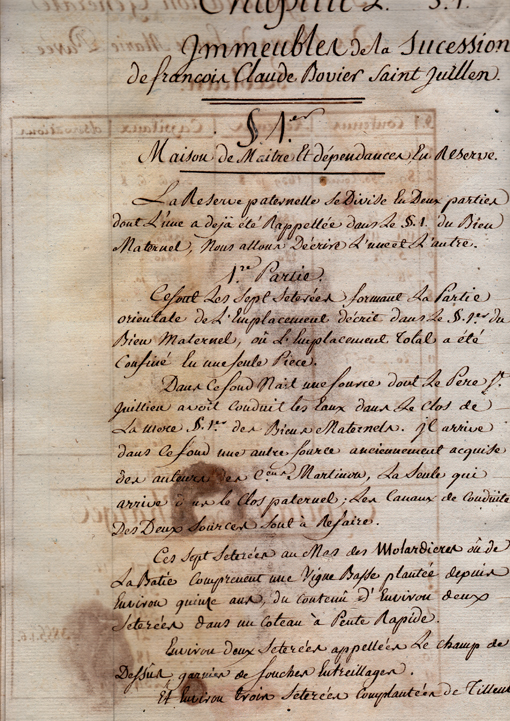 Chapitre 2. §. 1.
Immeubles de la Sucession
de françois Claude Bovier Saint Jullien.
§. 1.er
Maison de Maitre Et dépendances En Reserve.
La Reserve paternelle se Divise En Deux parties
dont L'une a dejà été Rappellée dans Le §. 1. du Bien
Maternel, Nous allons Décrire L'une et L'autre.
1.re Partie.
Ce sont Les Sept Seterées formant La Partie
orientale de L'Emplacement décrit dans Le §. 1.er du
Bien Maternel, où L'Emplacement Total a été
Confiné En une seule Piece.
Dans Ce fond Nait une source dont Le Pere S.t
Juillien avoit Conduit les Eaux dans Le Clos de
La more §. 1.er des Biens Maternels. Il arrive
dans Ce fond une autre source anciennement acquise
des auteurs des Martinon, La Soule qui
arrive dans le Clos paternel; Les Canaux de Conduite
Des Deux Sources Sont à Refaire.
Ces Sept Seterées au Mas des Molardieres où de
La Batie Comprenent une Vigne Basse plantée depuis
Environ quinze ans, du contenu d'Environ deux
Seterées dans un Coteau à Pente Rapide.
Environ deux Seterées appellées Le champ de
Dessus garnies de souches Entreillages.
Et Environ trois Seterées Complantées de Tilleul